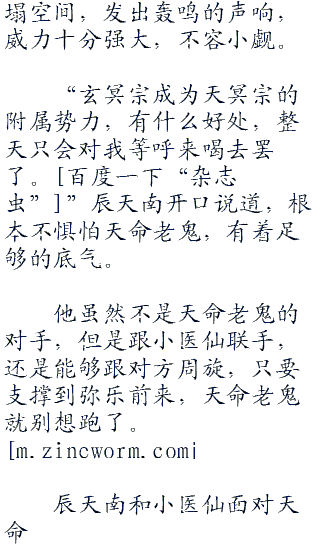 塌空间，发出轰鸣的声响，
威力十分强大，不容小觑。
“玄冥宗成为天冥宗的
附属势力，有什么好处，整
天只会对我等呼来喝去罢
了。[百度一下“杂志
虫”]”辰天南开口说道，根
本不惧怕天命老鬼，有着足
够的底气。
他虽然不是天命老鬼的
对手，但是跟小医仙联手，
还是能够跟对方周旋，只要
支撑到弥乐前来，天命老鬼
就别想跑了。
[m.zincworm.com]
辰天南和小医仙面对天
命